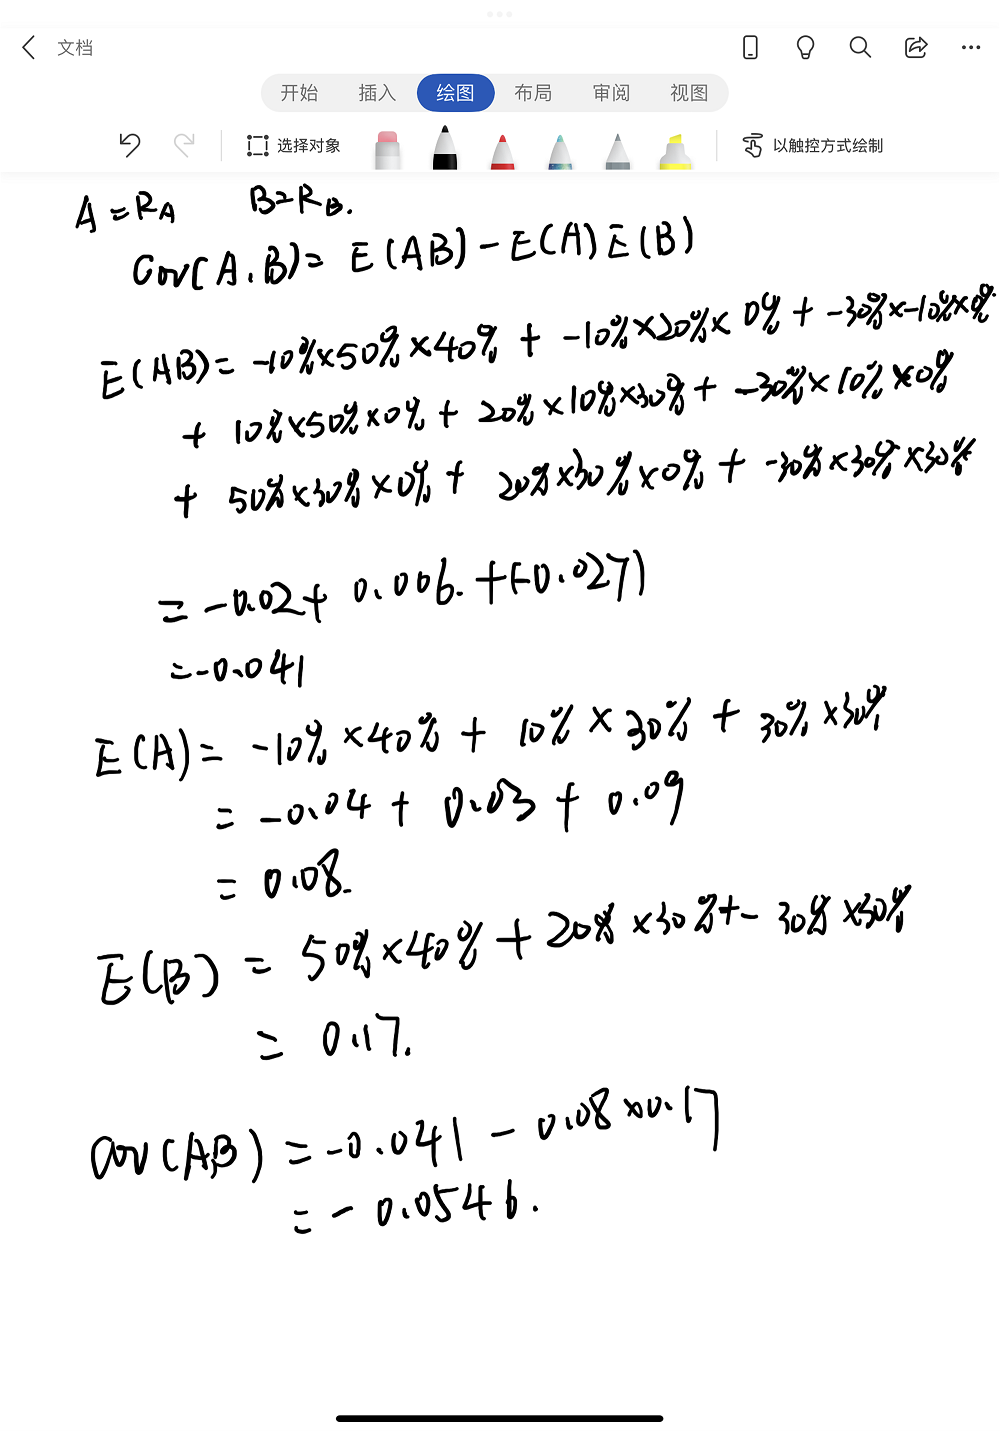 文档
开始 插入 绘图 布局 审阅 视图
选择对象 以触控方式绘制
A=RA B=RB.
Cov(A.B)= E(AB)-E(A)E(B)
E(AB)= -10%×50%×40% + -10%×20%×0% + -30%×-10%×0%
+ 10%×50%×0% + 20%×10%×30% + -30%×10%×0%
+ 50%×30%×0% + 20%×30%×0% + -30%×30%×30%
= -0.02+ 0.006. +(-0.027)
=-0.041
E(A)= -10%×40% + 10%×30% + 30%×30%
= -0.04 + 0.03 + 0.09
= 0.08.
E(B) = 50%×40% + 20%×30%+-30%×30%
= 0.17.
Cov(A,B) = -0.041 - 0.08×0.17
= - 0.0546.